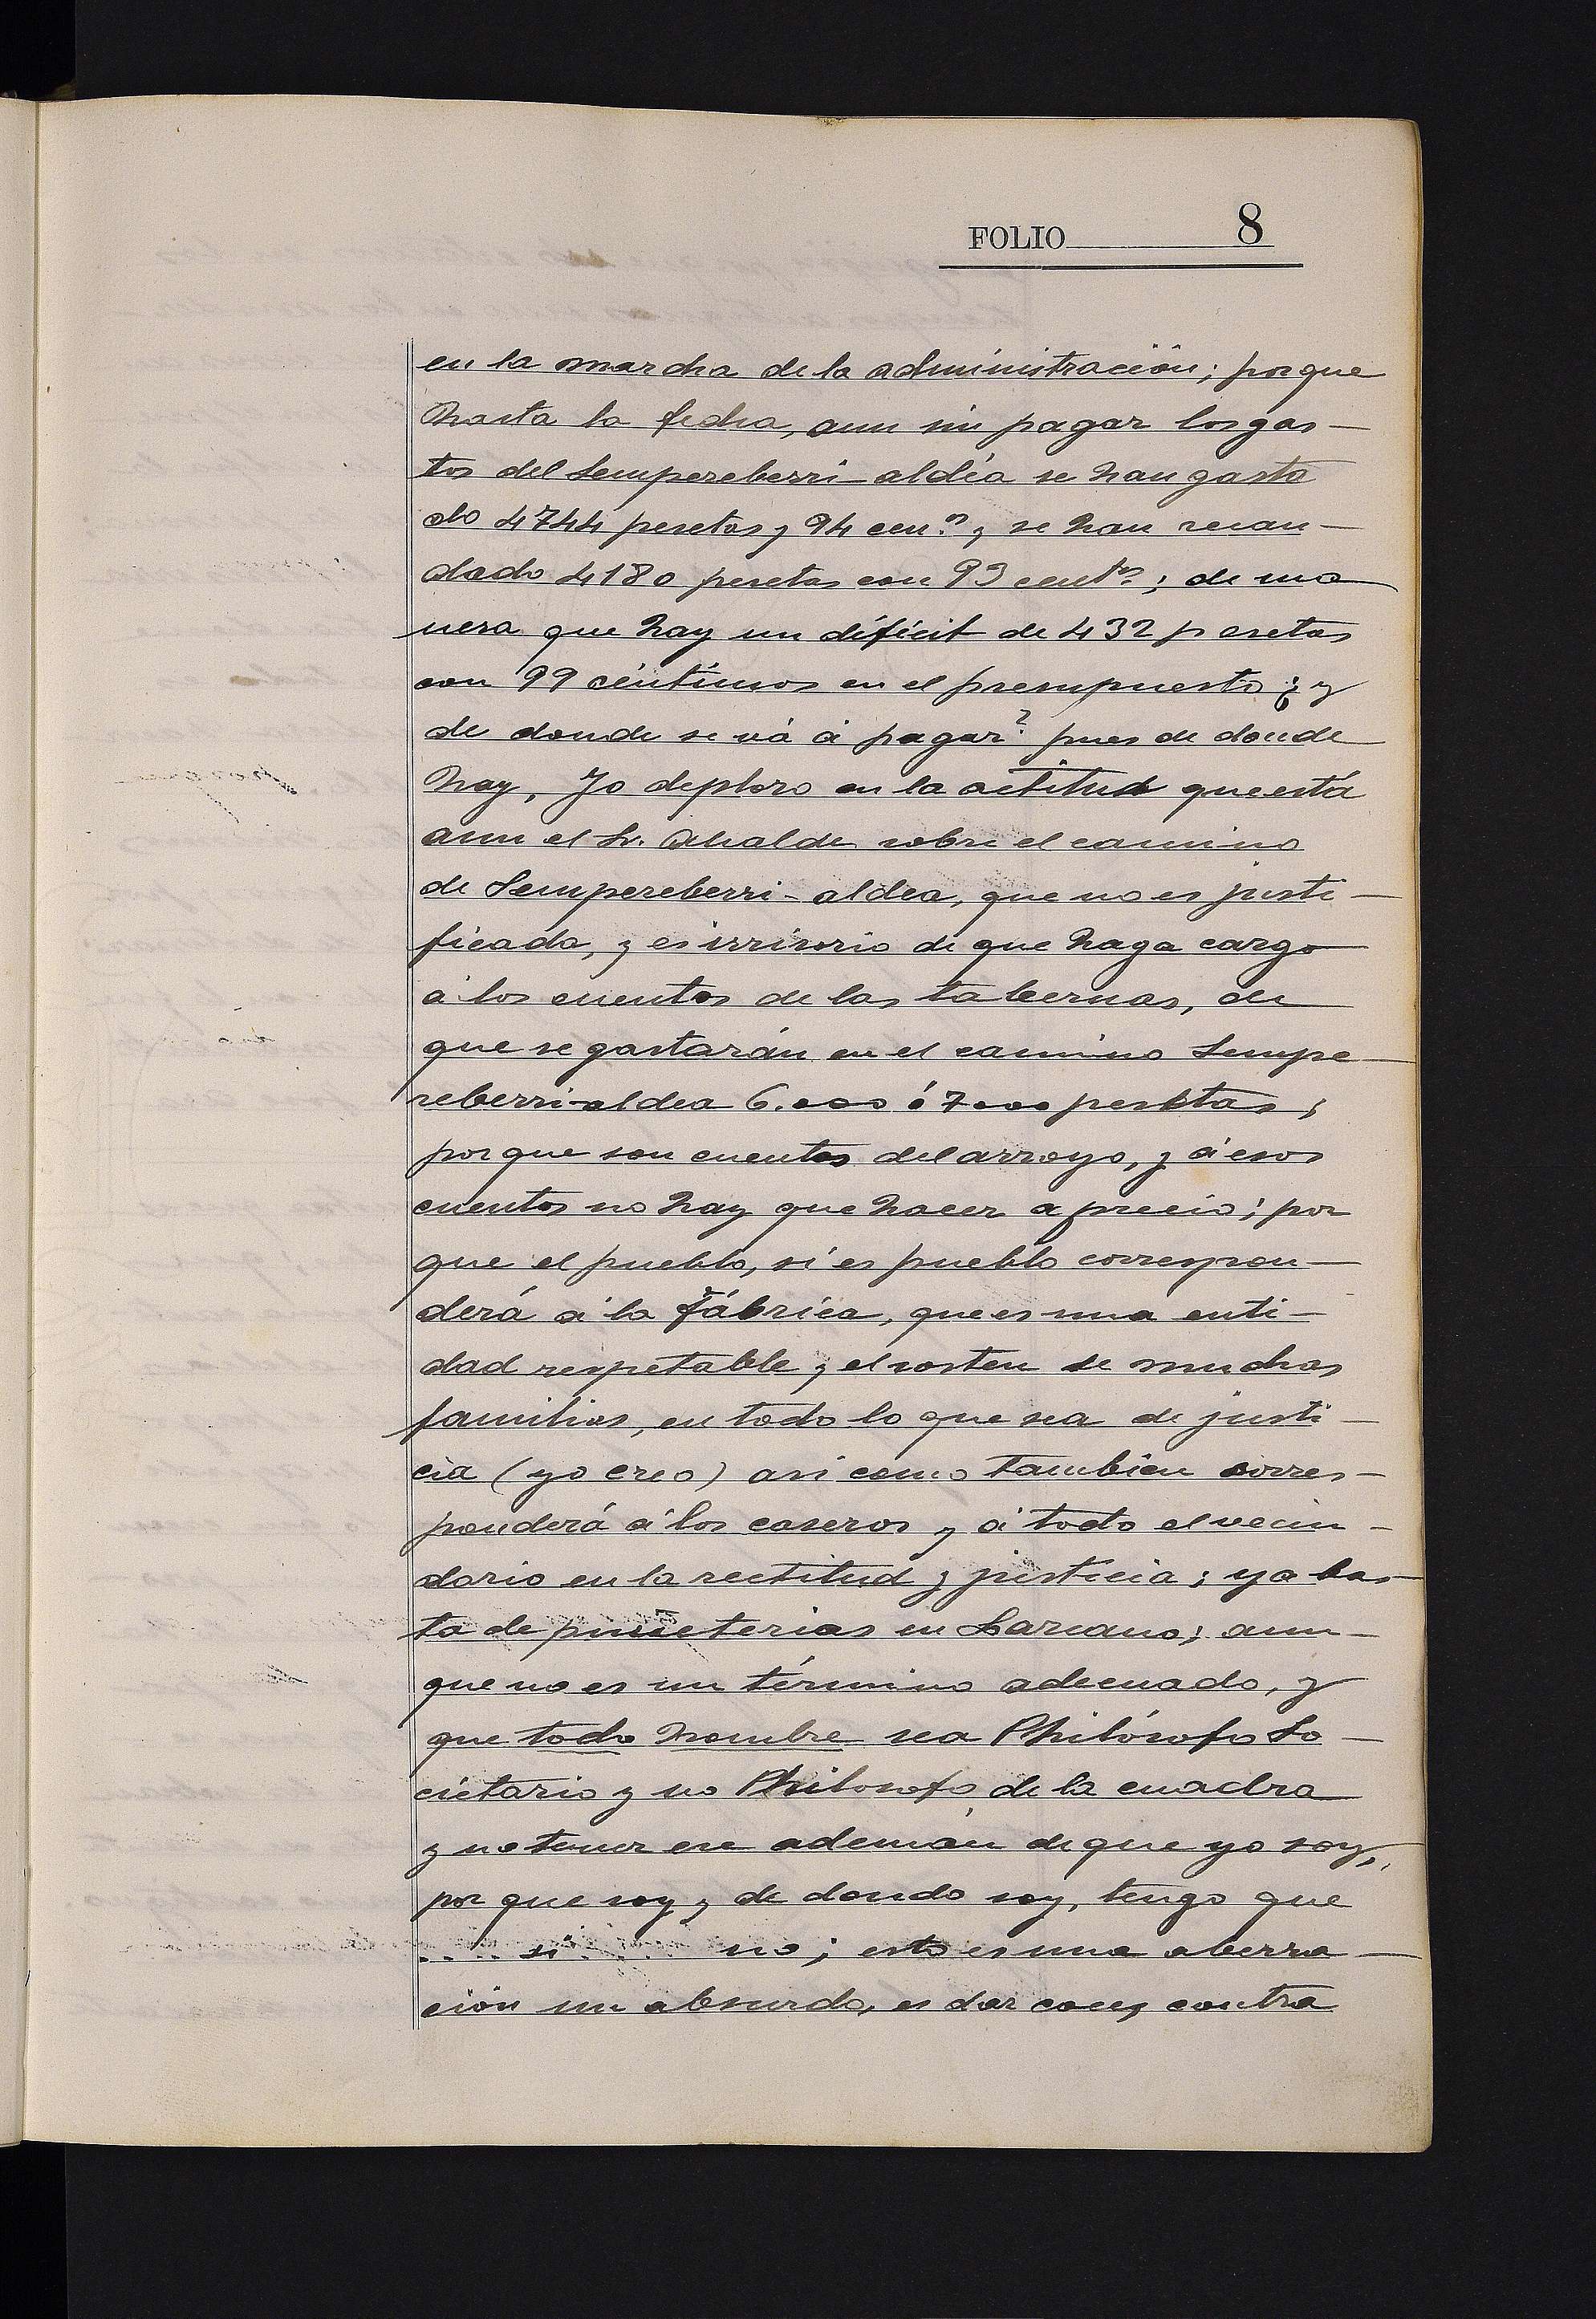 FOLIO 8
en la marcha de la administración; porque
hasta la fecha, aun sin pagar los gas-
tos del Sempereberri-aldea se han gasta
do 4744 pesetas y 94 cen.s y se han recau-
dado 4180 pesetas con 93 cent.s; de ma
nera que hay un déficit de 432 pesetas
con 99 céntimos en el presupuesto; ¿y
de donde se vá á pagar? pues de donde
hay, Yo deploro en la actitud que está
aun el Sr. Alcalde sobre el camino
de Sempereberri-aldea, que no es justi-
ficada, y es irrisorio de que haga cargo
á los cuentos de las tabernas, de
que se gastarán en el camino Sempe-
reberri-aldea 6.000 ó 7000 pesetas;
porque son cuentos del arroyo, y á esos
cuentos no hay que hacer aprecio; por
que el pueblo, si es pueblo correspon-
derá á la Fábrica, que es una enti-
dad respetable y el sosten de muchas
familias, en todo lo que sea de justi-
cia (yo creo) asi como tambien corres-
ponderá á los caseros y á todo el vecin-
dario en la rectitud y justicia; ya bas-
ta de en Lazcano; aun-
que no es un término adecuado, y
que todo hombre sea Philósofo So-
cietario y no Philosofo de la cuadra
y no tener ese ademán de que yo soy,
por que soy y de donde soy, tengo que
.... si .... no; esto es una aberra-
ción un absurdo, es dar coces contra